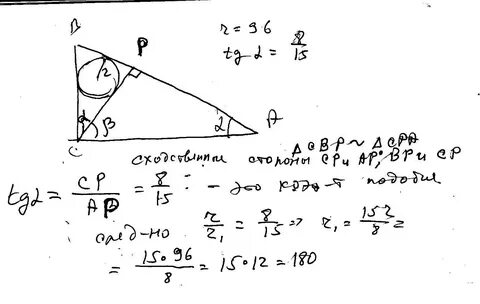 B
P
r = 96
tg α = 8/15
r
α
C
β
α
A
ΔCBP ~ ΔCPA
сходственные стороны CP и AP; BP и CP
tg α = CP/AP = 8/15 - это коэф-т подобия
след-но r/r₁ = 8/15 ⇒ r₁ = 15r/8 =
= 15·96/8 = 15·12 = 180